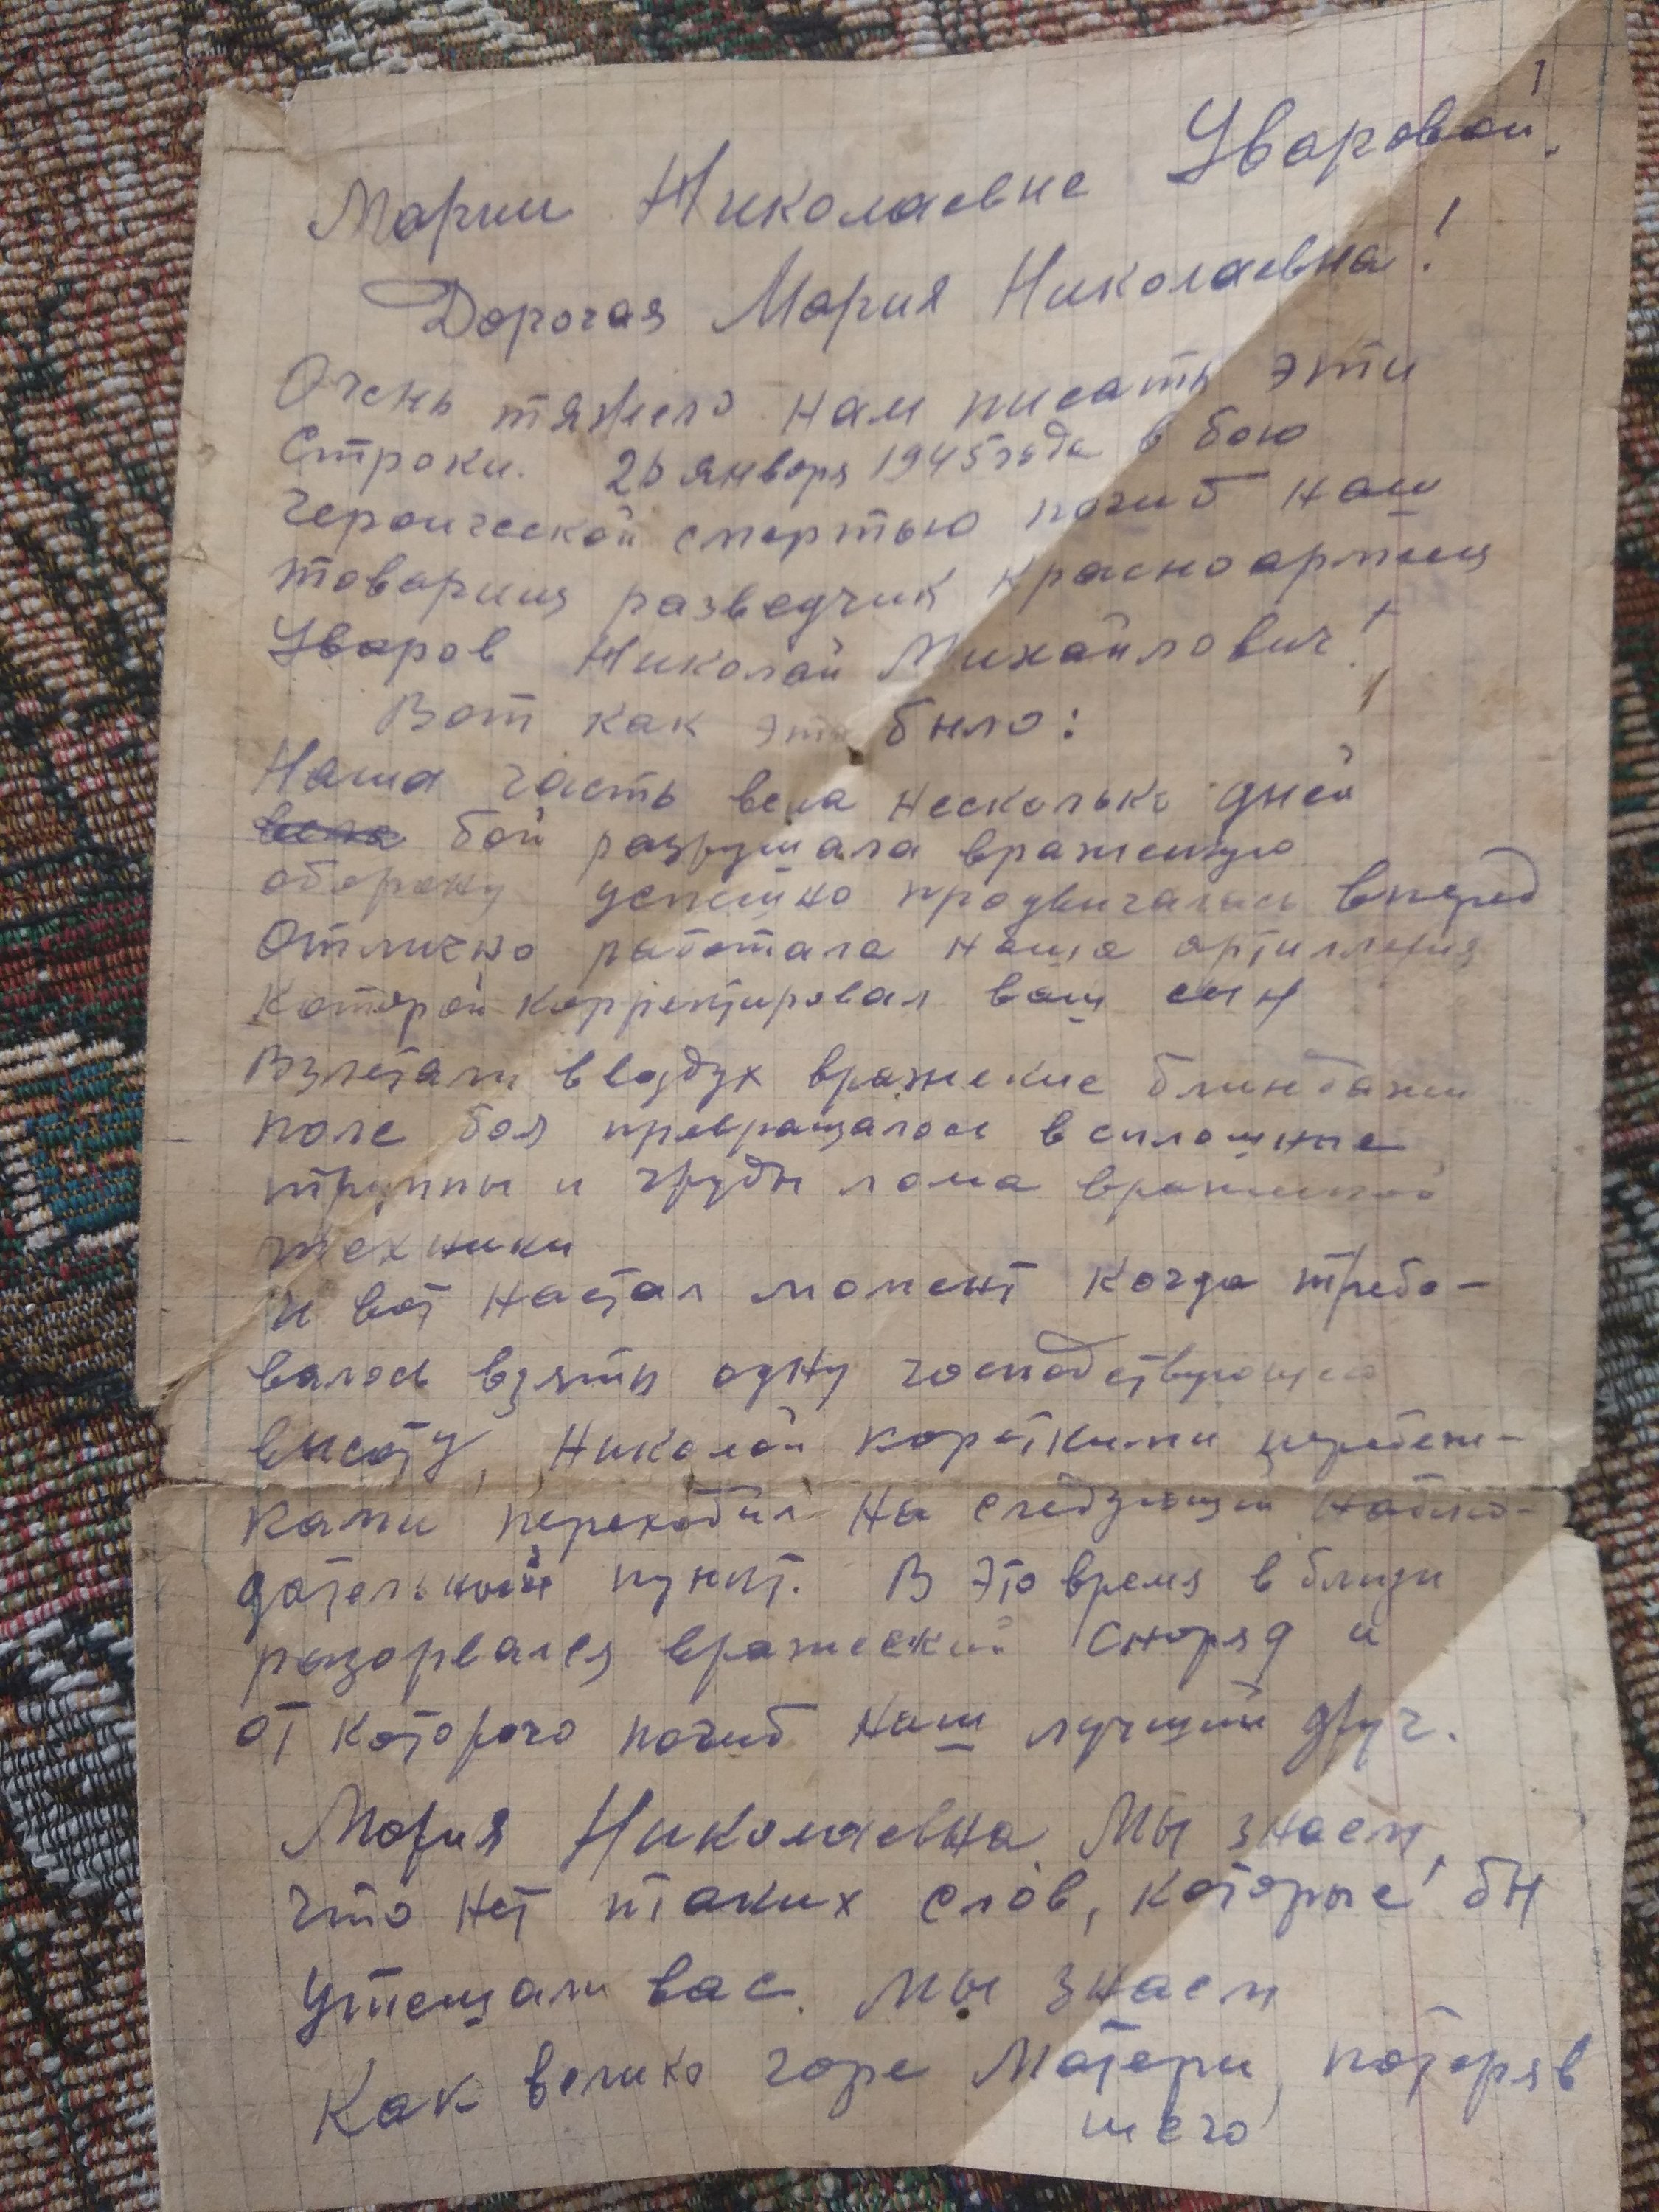 Марии Николаевне Уваровой.
Дорогая Мария Николаевна!
Очень тяжело нам писать эти
строки. 26 января 1945 года в бою
героической смертью погиб наш
товарищ разведчик красноармеец
Уваров Николай Михайлович!
Вот как это было:
Наша часть вела несколько дней
вела бой разрушала вражескую
оборону успешно продвигалась вперед
Отлично работала наша артиллерия
которой корректировал ваш сын
Взлетали в воздух вражеские блиндажи
поле боя превращалось в сплошные
трупы и груды лома вражеской
техники
и вот настал момент когда требо-
валось взять одну господствующую
высоту, Николай короткими перебеж-
ками переходил на следующий наблю-
дательный пункт. В это время в близи
разорвался вражеский снаряд и
от которого погиб наш лучший друг.
Мария Николаевна Мы знаем,
что нет таких слов, которые бы
утешали вас. Мы знаем
Как велико горе Матери, потеряв
шего